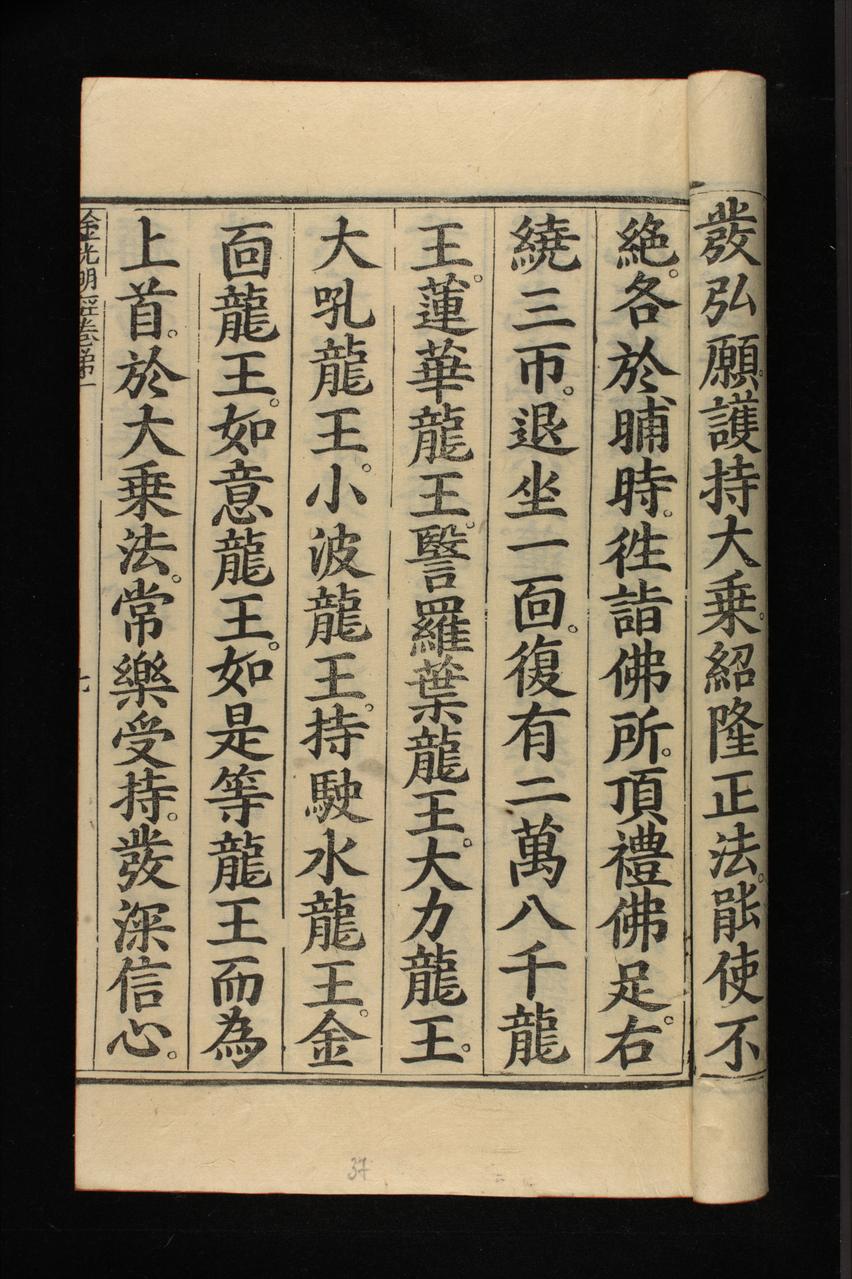 發弘願。護持大乗。紹隆正法。能使不
絶。各於晡時。徃詣佛所。頂禮佛足。右
繞三帀。退坐一靣。復有二萬八千龍
王。蓮華龍王。瞖羅葉龍王。大力龍王。
大吼龍王。小波龍王。持駛水龍王。金
靣龍王。如意龍王。如是等龍王而為
上首。於大乗法。常樂受持。發深信心。
金光明經卷第一
七
37